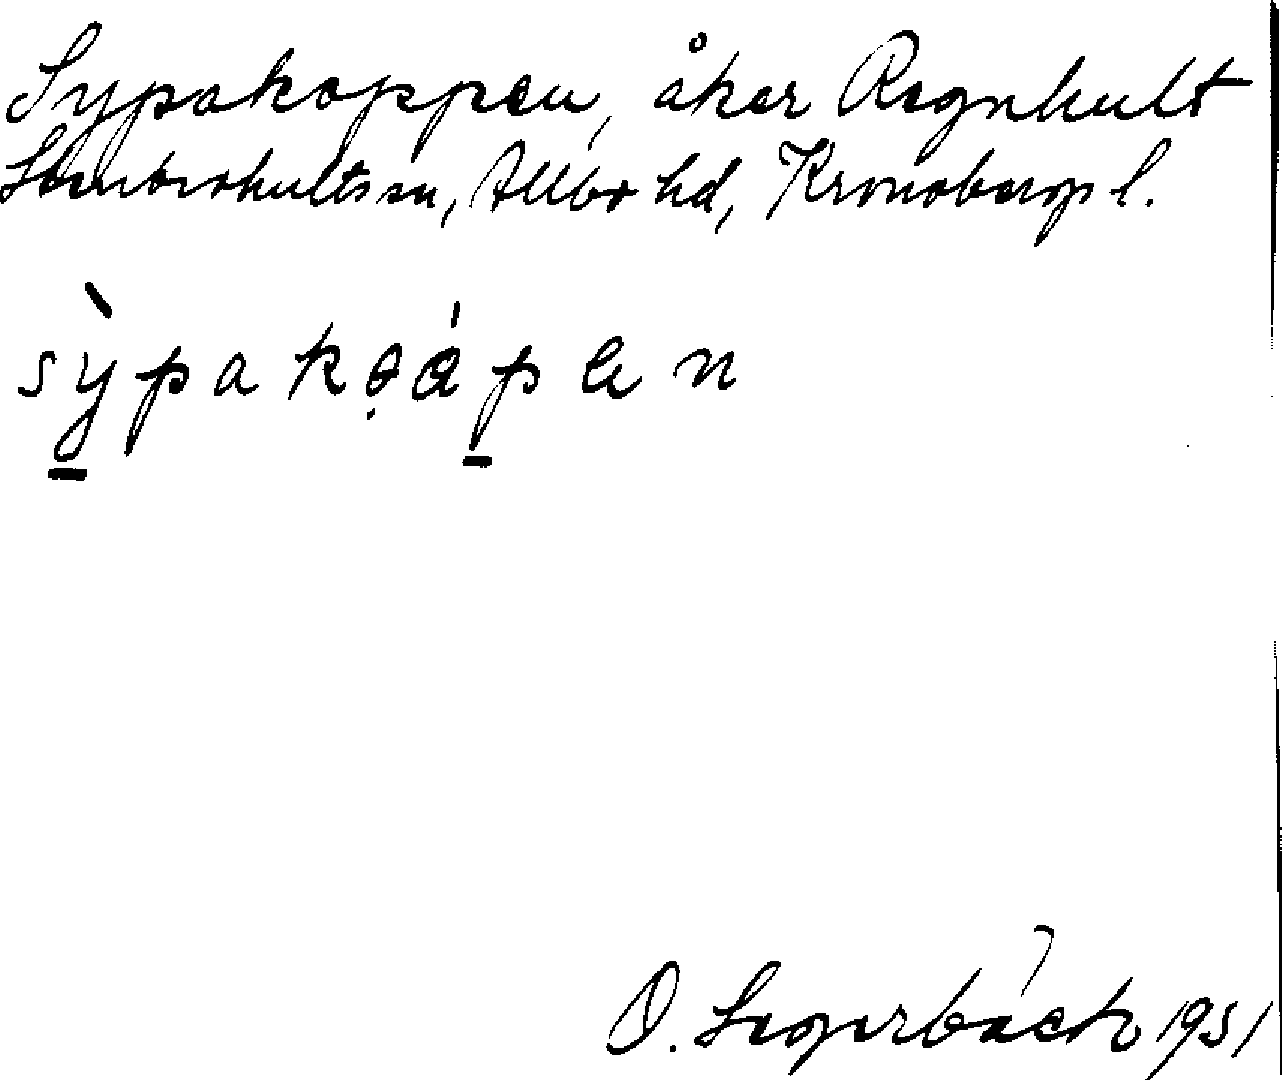 Sypakoppen, åker Ragnhult
Stenbrohults sn, Allbo hd, Kronobergs l.
sỳpakọápen
O. Segerbäck 1951